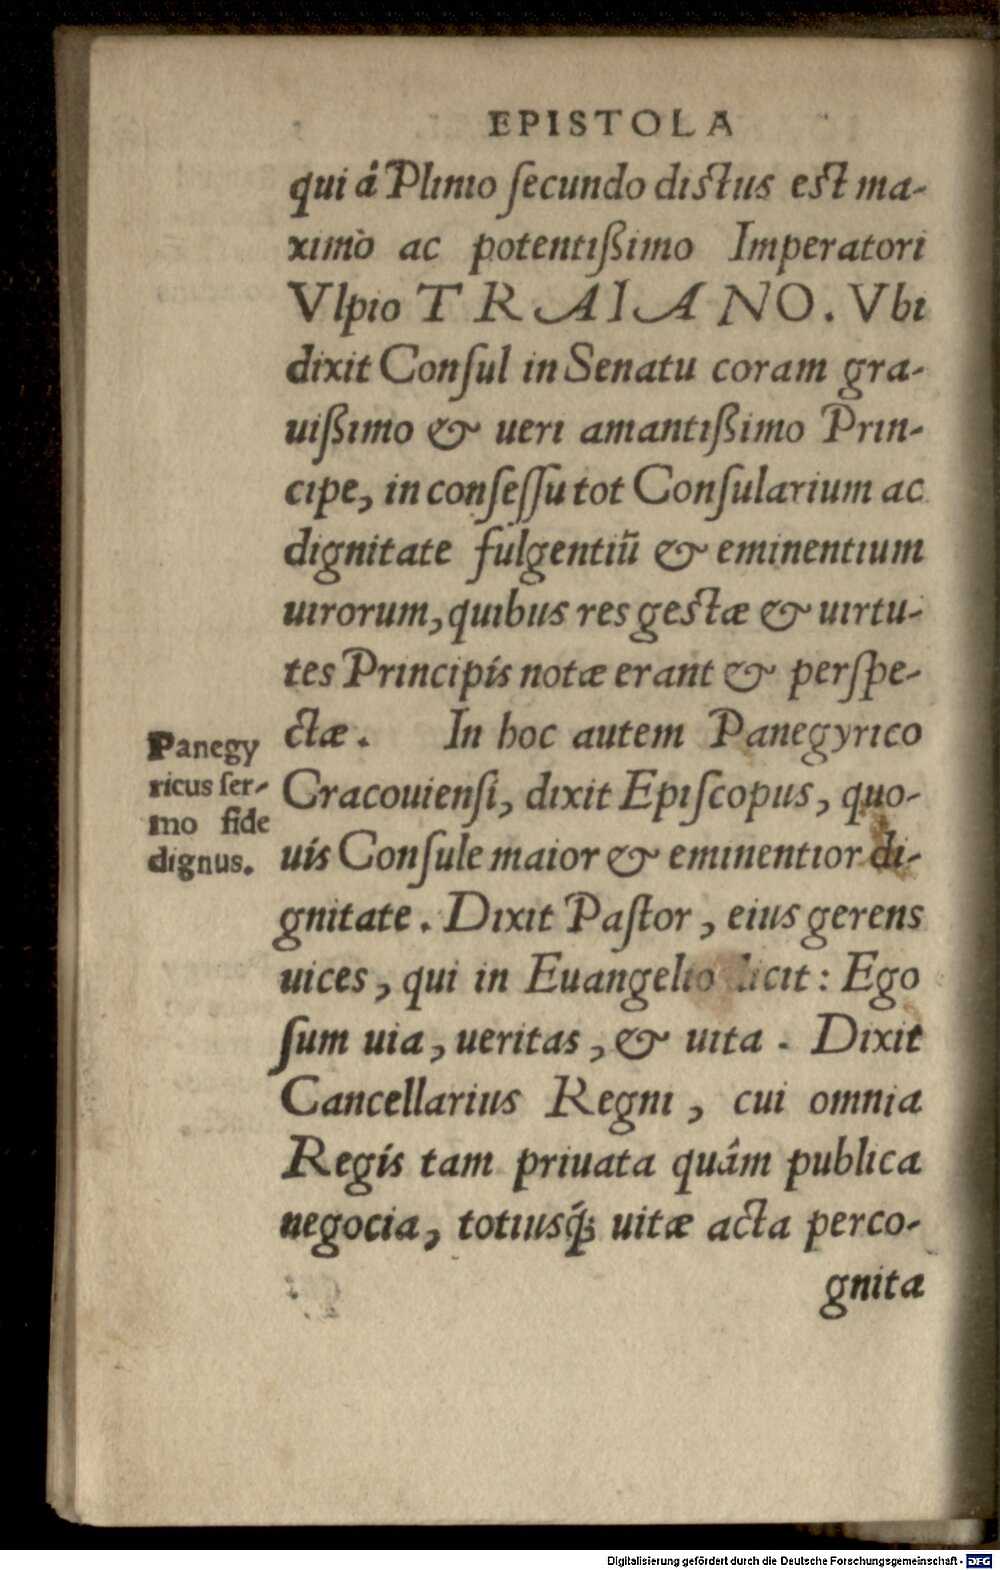 EPISTOLA
qui â Plinio ſecundo dictus eſt ma-
ximò ac potentißimo Imperatori
Vlpio TRAIANO. Vbi
dixit Conſul in Senatu coram gra-
uißimo & ueri amantißimo Prin-
cipe, in conſeſſu tot Conſularium ac
dignitate fulgentiū & eminentium
uirorum, quibus res geſtæ & uirtu-
tes Principis notæ erant & perſpe-
ctæ. In hoc autem Panegyrico
Cracouienſi, dixit Epiſcopus, quo-
uis Conſule maior & eminentior di-
gnitate. Dixit Paſtor, eius gerens
uices, qui in Euangelio dicit: Ego
ſum uia, ueritas, & uita. Dixit
Cancellarius Regni, cui omnia
Regis tam priuata quâm publica
negocia, totiusq́; uitæ acta perco-
gnita
Panegy
ricus ſer-
mo fide
dignus.
Digitalisierung gefördert durch die Deutsche Forschungsgemeinschaft - DFG